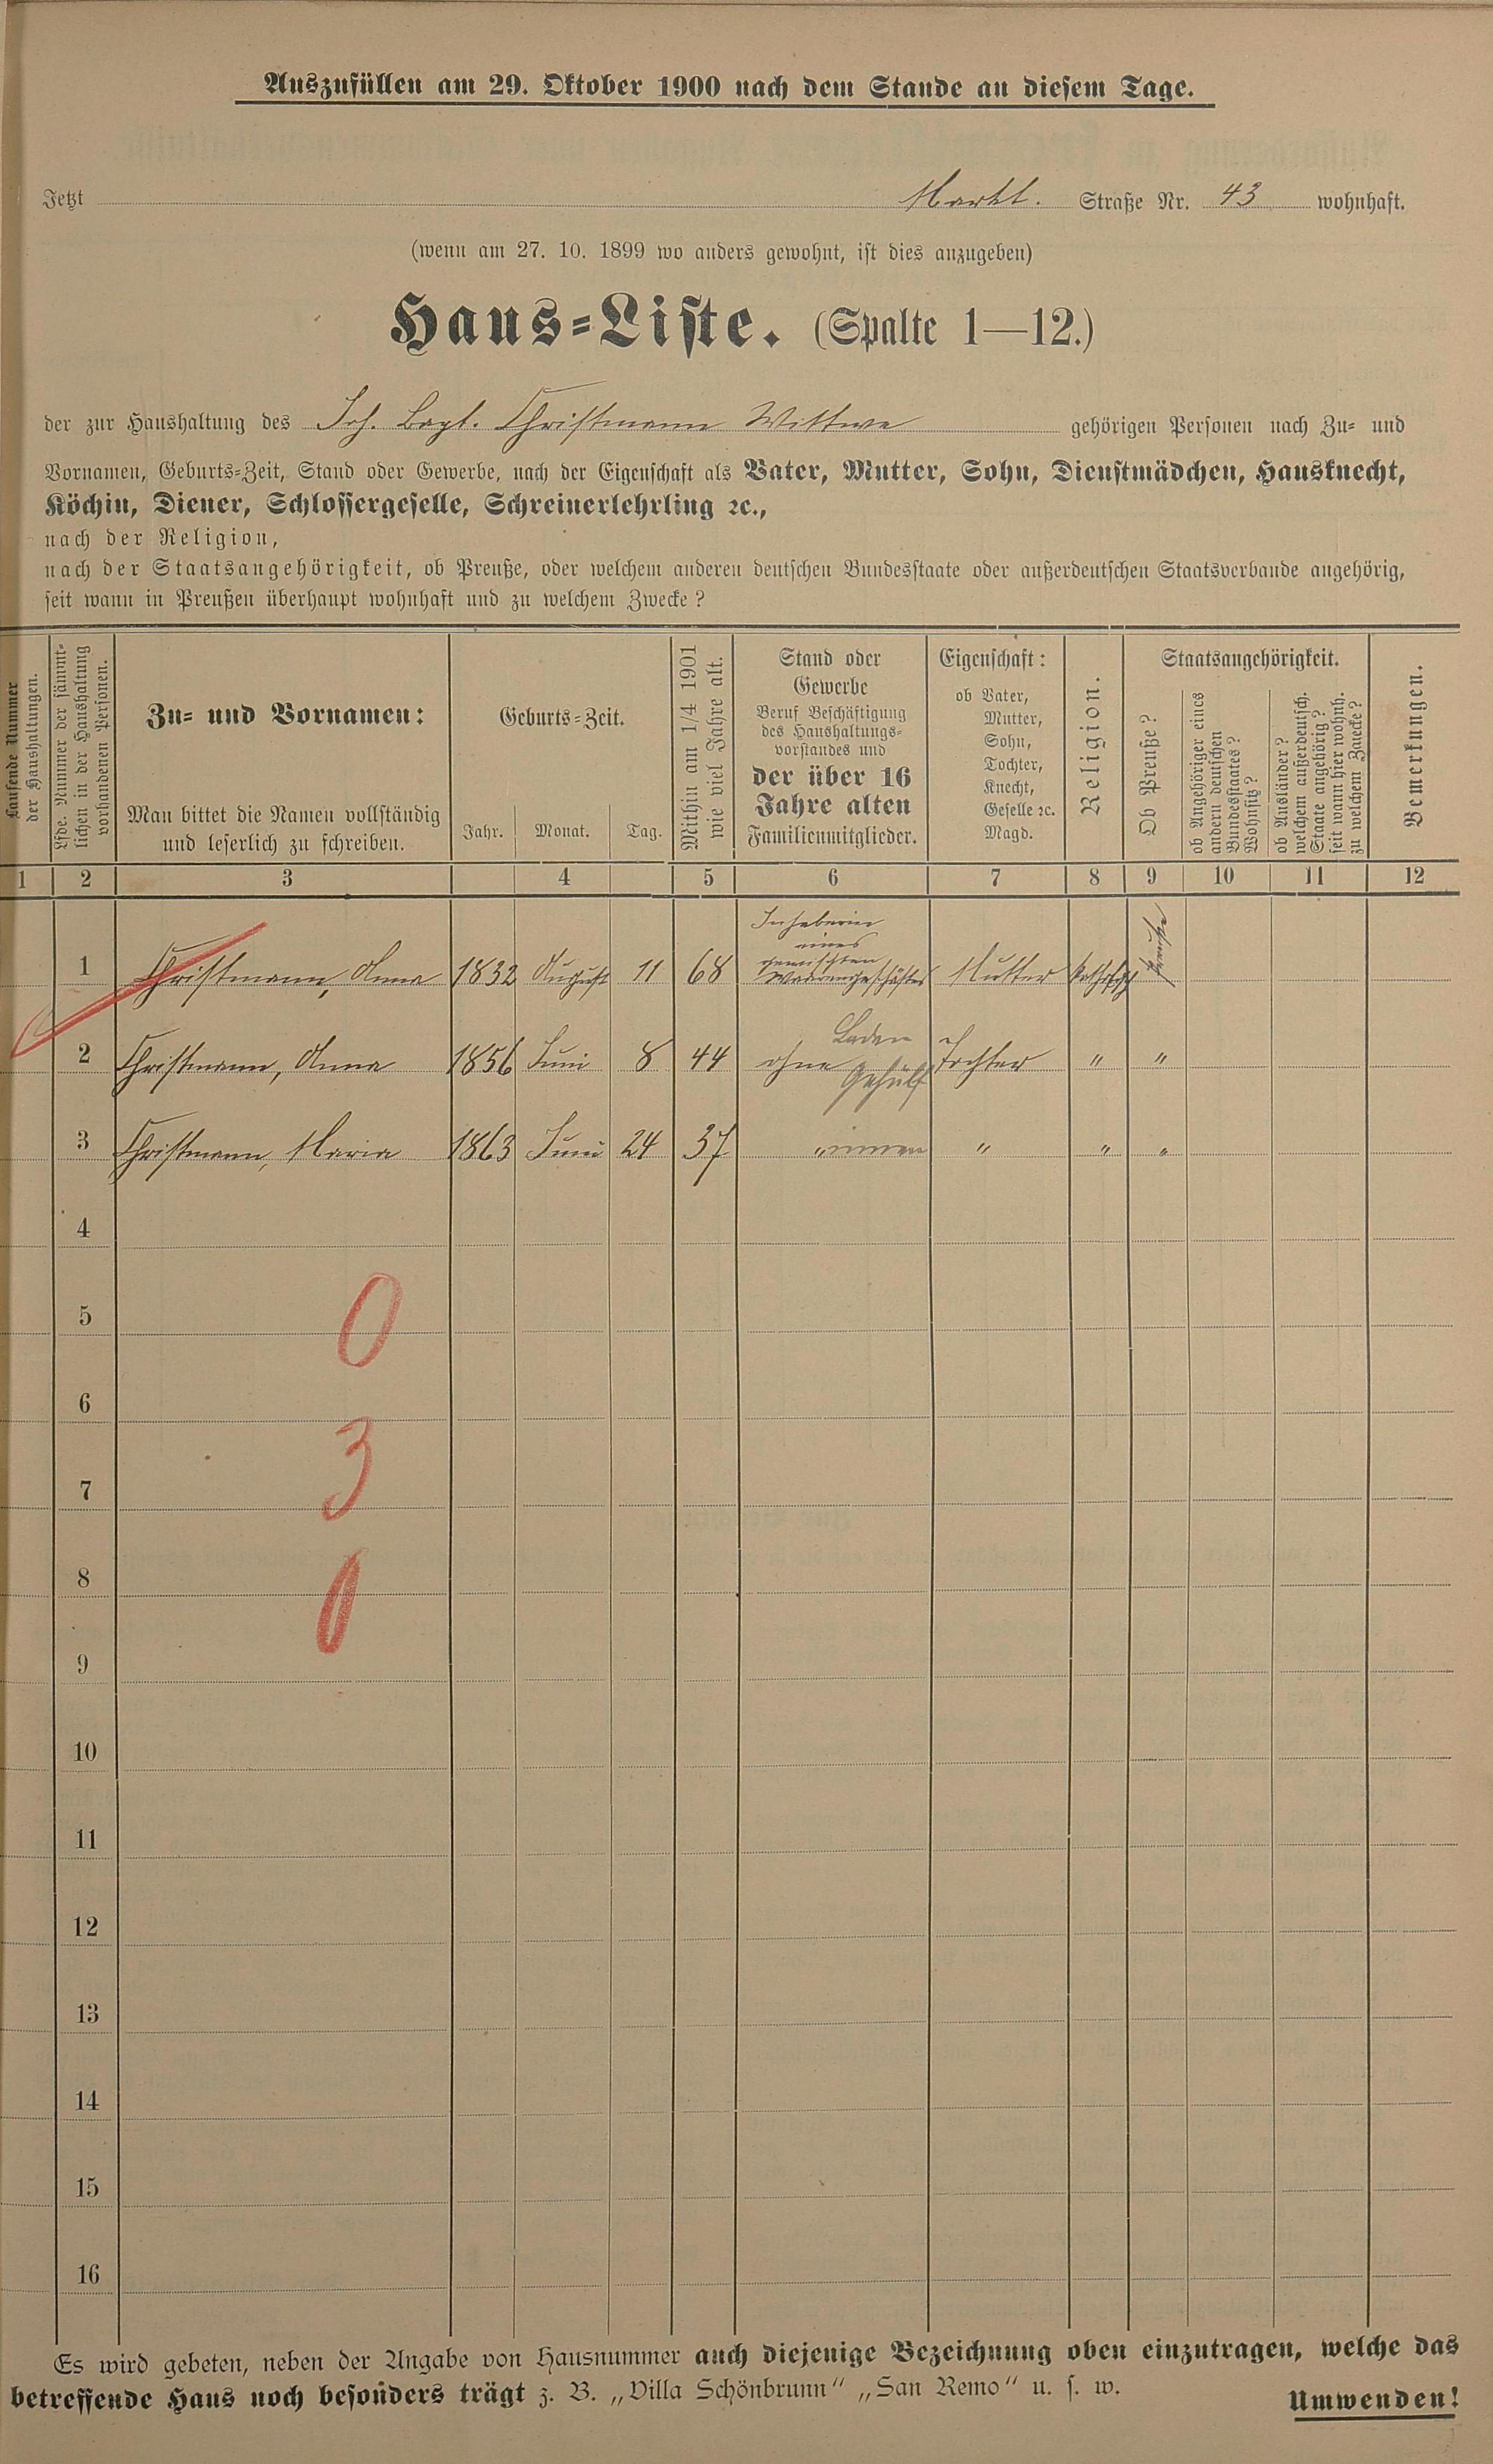 Auszufüllen am 29. Oktober 1900 nach dem Stande an diesem Tage.
Jetzt Markt. Straße Nr. 43 wohnhaft.
(wenn am 27. 10. 1899 wo anders gewohnt, ist dies anzugeben)
Haus-Liste. (Spalte 1—12.)
der zur Haushaltung des Joh. Bapt. Christmann Wittwe gehörigen Personen nach Zu- und
Vornamen, Geburts-Zeit, Stand oder Gewerbe, nach der Eigenschaft als Vater, Mutter, Sohn, Dienstmädchen, Hausknecht,
Köchin, Diener, Schlossergeselle, Schreinerlehrling ꝛc.,
nach der Religion,
nach der Staatsangehörigkeit, ob Preuße, oder welchem anderen deutschen Bundesstaate oder außerdeutschen Staatsverbande angehörig,
seit wann in Preußen überhaupt wohnhaft und zu welchem Zwecke?
Laufende Nummer
der Haushaltungen.
Lfde. Nummer der sämmt-
lichen in der Haushaltung
vorhandenen Personen.
Zu- und Vornamen:
Man bittet die Namen vollständig
und leserlich zu schreiben.
Geburts-Zeit.
Jahr. Monat. Tag.
Mithin am 1/4 1901
wie viel Jahre alt.
Stand oder
Gewerbe
Beruf Beschäftigung
des Haushaltungs-
vorstandes und
der über 16
Jahre alten
Familienmitglieder.
Eigenschaft:
ob Vater,
Mutter,
Sohn,
Tochter,
Knecht,
Geselle ꝛc.
Magd.
Religion.
Staatsangehörigkeit.
Ob Preuße?
ob Angehöriger eines
andern deutschen
Bundesstaates?
Wohnsitz?
ob Ausländer?
welchem außerdeutsch.
Staate angehörig?
seit wann hier wohnh.
zu welchem Zwecke?
Bemerkungen.
1 2 3 4 5 6 7 8 9 10 11 12
Inhaberin
eines
gemischten
1 Christmann, Anna 1832 August 11 68 Waarengeschäftes Mutter Katholisch Preuße
Laden
2 Christmann, Anna 1856 Juni 8 44 ohne Tochter " "
Gehülf
3 Christmann, Maria 1863 Juni 24 37 " innen " " "
4
5
0
6
3
7
8
0
9
10
11
12
13
14
15
16
Es wird gebeten, neben der Angabe von Hausnummer auch diejenige Bezeichnung oben einzutragen, welche das
betreffende Haus noch besonders trägt z. B. „Villa Schönbrunn“ „San Remo“ u. s. w.
Umwenden!